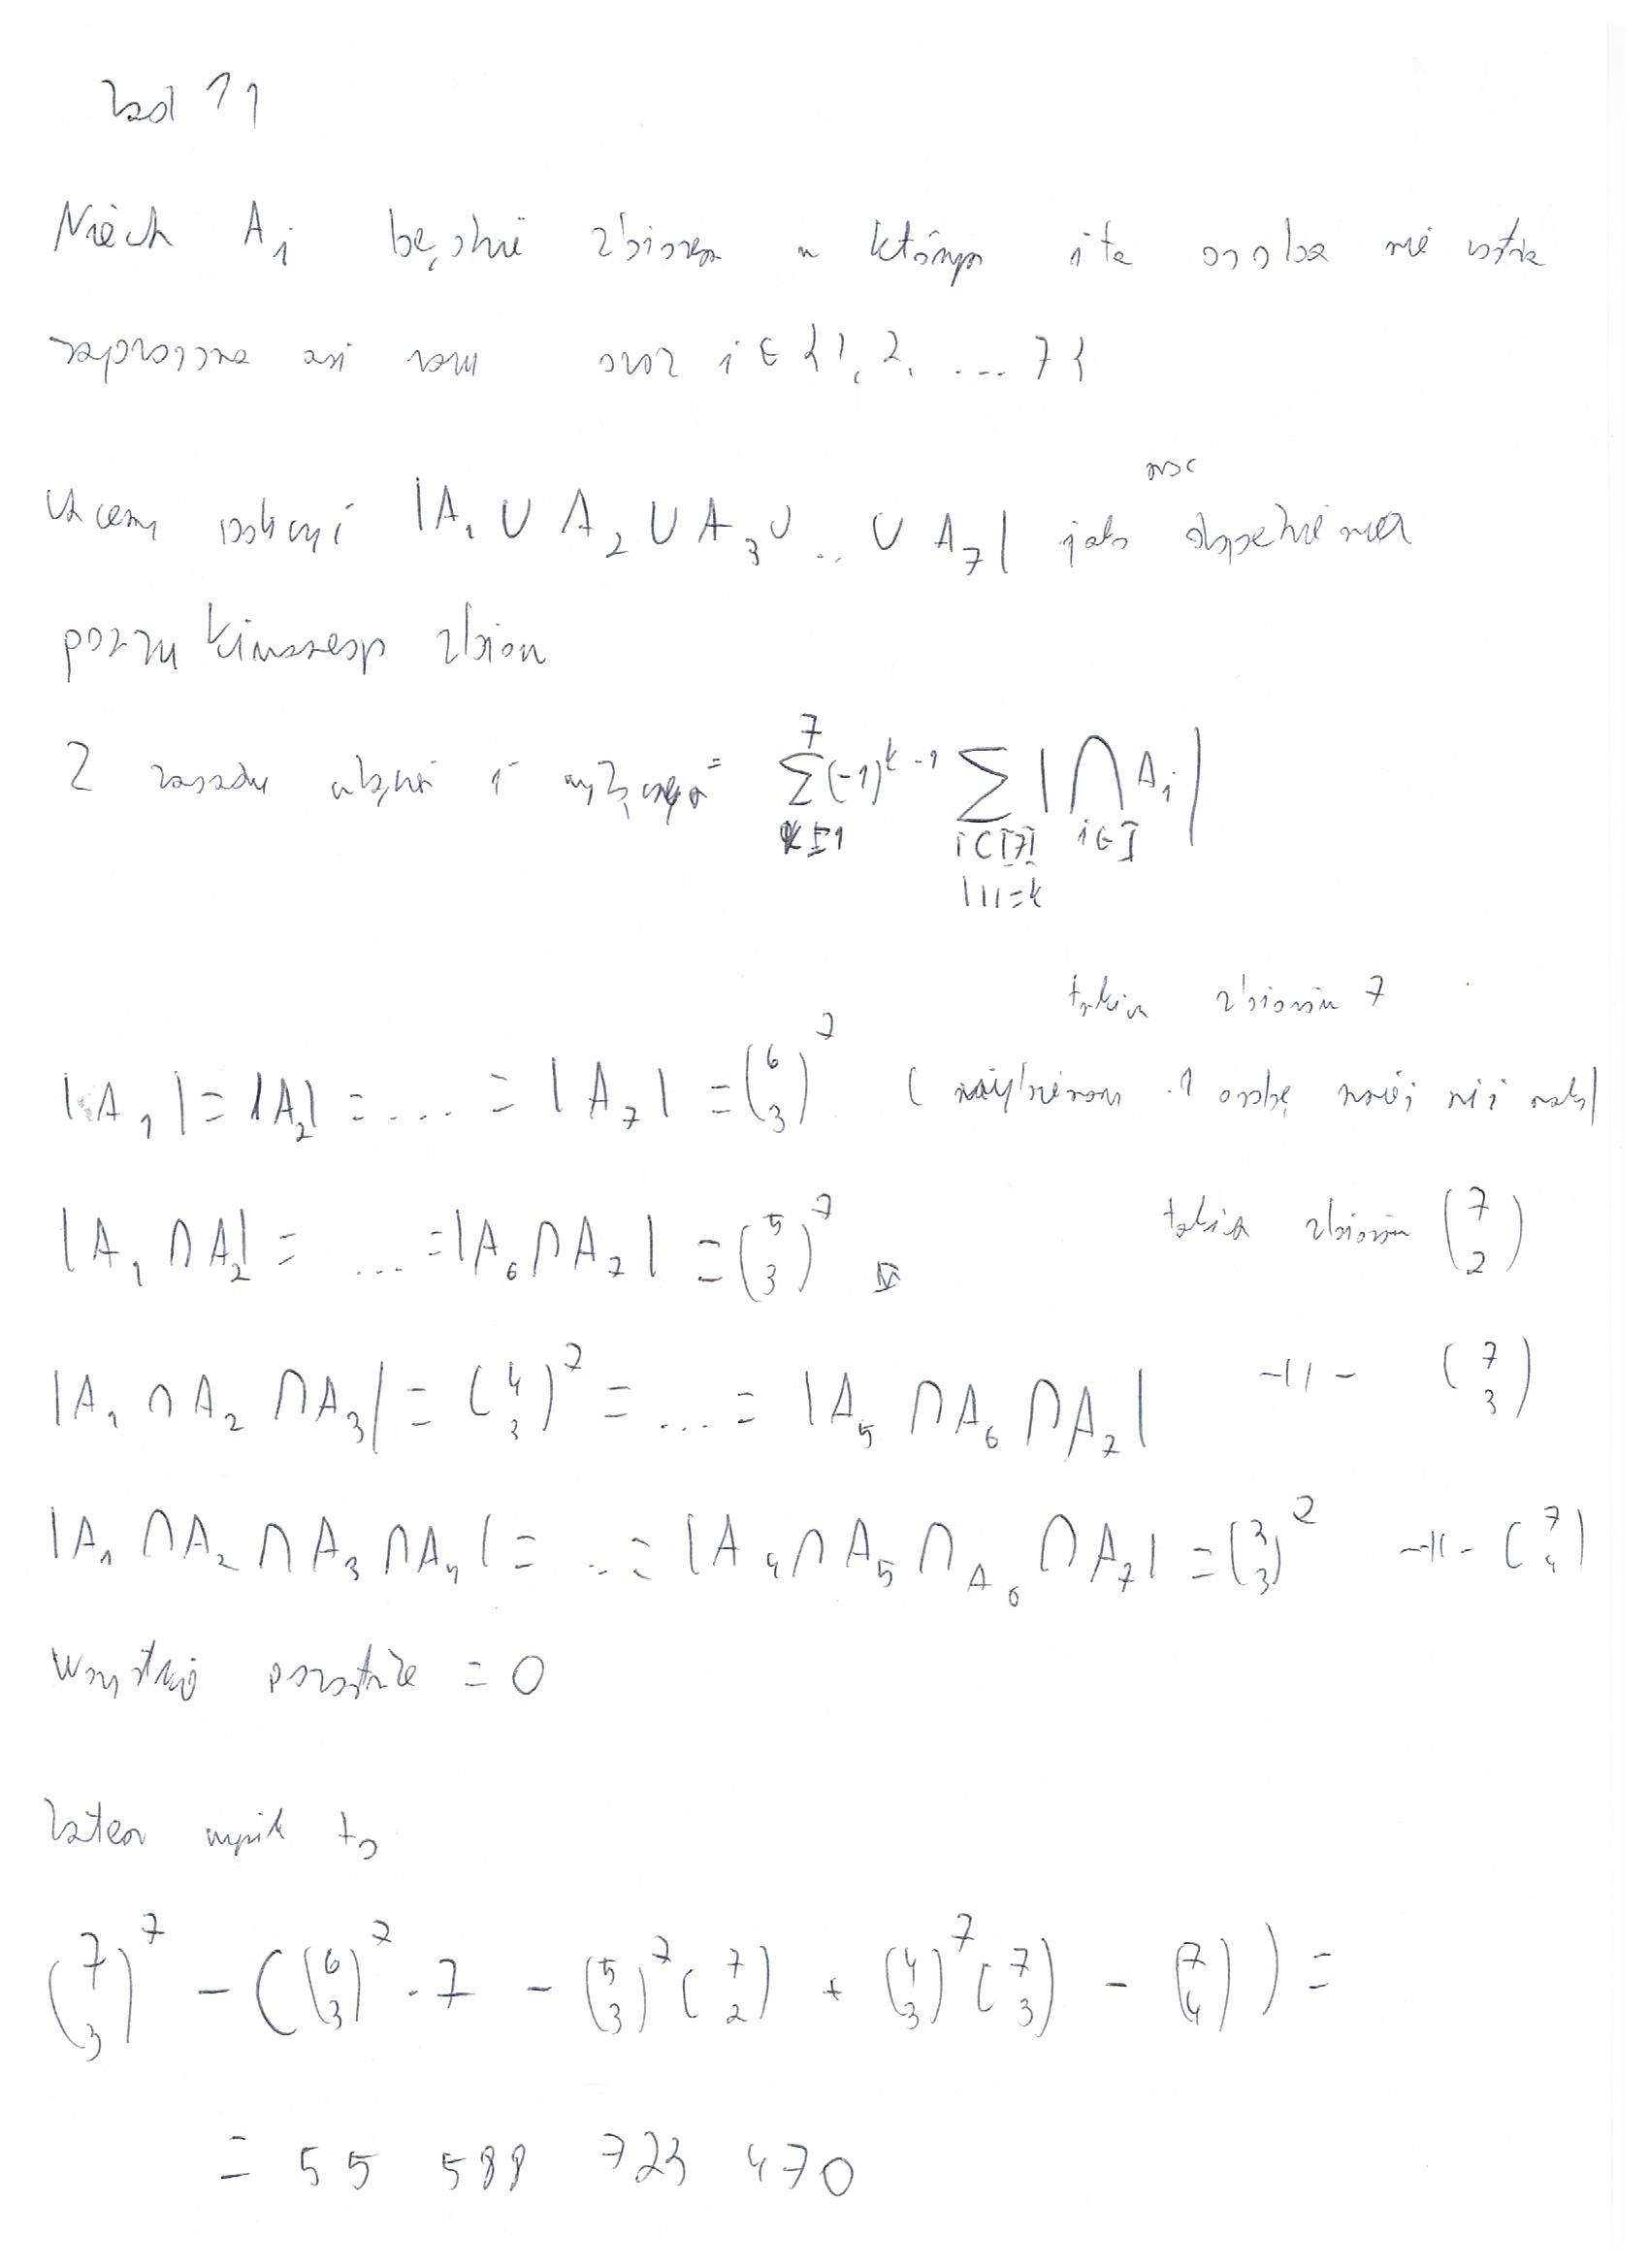 Zad 11
Niech A_i będzie zbiorem w którym i ta osoba nie została
zaproszona ani razu oraz i ∈ {1, 2, ... 7}
moc
Chcemy |A_1 ∪ A_2 ∪ A_3 ∪ .. ∪ A_7| jako dopełnienie
zbioru
Z zasady włączeń i wyłączeń = \sum_{k=1}^{7} (-1)^{k-1} \sum_{I⊂[7], |I|=k} |⋂_{i∈I} A_i|
takich zbiorów 7
|A_1| = |A_2| = .... = |A_7| = \binom{6}{3}^7 ( wybieramy 1 osobę mniej niż)
|A_1 ∩ A_2| = ... = |A_6 ∩ A_7| = \binom{5}{3}^7 takich zbiorów \binom{7}{2}
|A_1 ∩ A_2 ∩ A_3| = \binom{4}{3}^7 = ... = |A_5 ∩ A_6 ∩ A_7| -||- \binom{7}{3}
|A_1 ∩ A_2 ∩ A_3 ∩ A_4| = ..= |A_4 ∩ A_5 ∩ A_6 ∩ A_7| = \binom{3}{3}^7 -||- \binom{7}{4}
Wszystkie pozostałe = 0
Zatem wynik to
\binom{7}{3}^7 - (\binom{6}{3}^7 · 7 - \binom{5}{3}^7 \binom{7}{2} + \binom{4}{3}^7 \binom{7}{3} - \binom{7}{4}) =
= 55 588 723 470